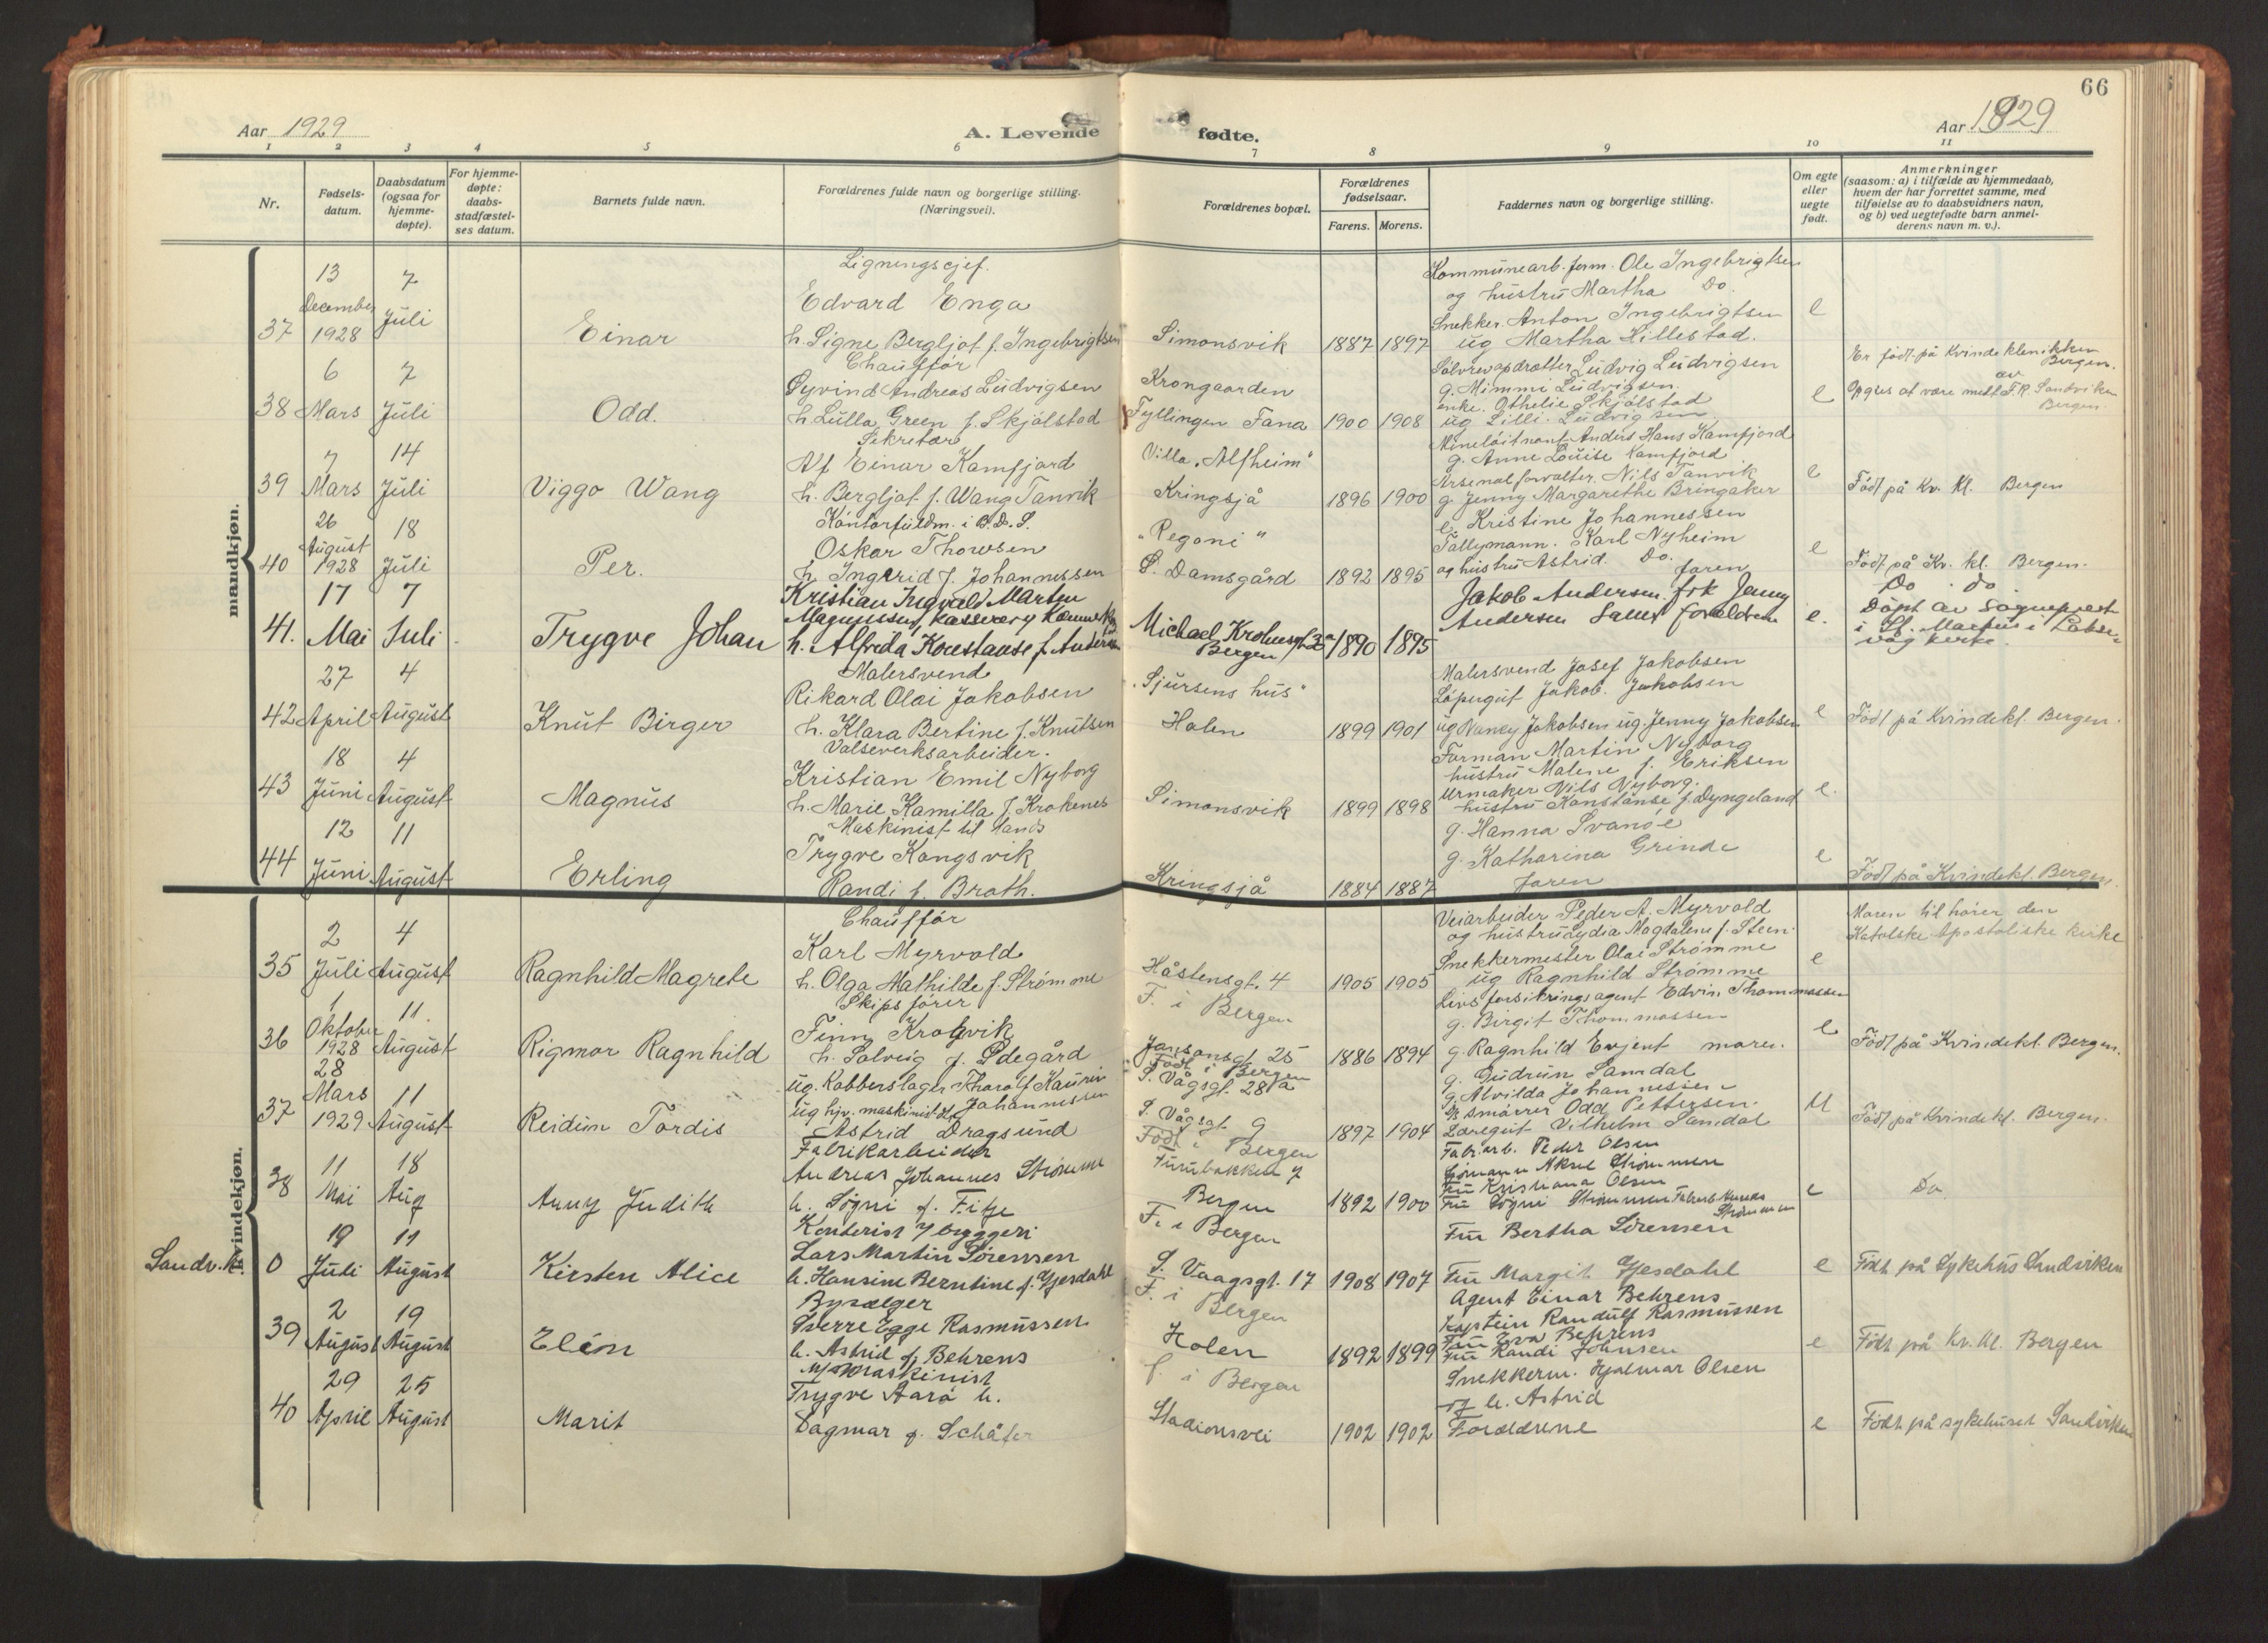 66
Aar 1929
A. Levende fødte.
Aar 1929
1 2 3 4 5 6 7 8 9 10 11
Nr.
Fødsels-
datum.
Daabsdatum
(ogsaa for
hjemme-
døpte).
For hjemme-
døpte:
daabs-
stadfæstel-
ses datum.
Barnets fulde navn.
Forældrenes fulde navn og borgerlige stilling.
(Næringsvei).
Forældrenes bopæl.
Forældrenes
fødselsaar.
Farens. Morens.
Faddernes navn og borgerlige stilling.
Om egte
eller
uegte
født.
Anmerkninger
(saasom: a) i tilfælde av hjemmedaab,
hvem der har forrettet samme, med
tilføielse av to daabsvidners navn,
og b) ved uegtefødte barn anmel-
derens navn m. v.).
mandkjøn.
37
13
December
1928
7
Juli
Einar
Ligningscjef.
Edvard Enga
h. Signe Bergljot f. Ingebrigtsen
Simonsvik
1887 1897
Kommunearb. form. Ole Ingebrigtsen
og hustru Martha Do.
Snekker. Anton Ingebrigtsen
ug Martha Hillestad.
e
38
6
Mars
7
Juli
Odd.
Chauffør
Øyvind Andreas Ludvigsen
h. Lulla Green f. Skjølstad
Krongaarden
Fyllingen Fana
1900 1908
Sølvrevopdrætter Ludvig Ludvigsen
g. Mimmi Ludvigsen.
enke. Othelie Skjølstad
ug Lilli. Ludvigsen
e
Er født på Kvindeklenikken
Bergen.
Opgves at være meldt av F.R. Sandviken
Bergen.
39
7
Mars
14
Juli
Viggo Wang
Sekretær
Alf Einar Kamfjord
h. Bergljot f. Wang Tanvik
Villa "Alfheim"
Kringsjå
1896 1900
Mineløitnant Anders Hans Kamfjord
g. Anne Louise Kamfjord
Arsenalforvalter. Nils Tanvik
g. Jenny Margarethe Bringaker
e
Født på Kv. Kl. Bergen
40
26
August
1928
18
Juli
Per.
Kontorfuldm. i B.D.S.
Oskar Thowsen
h. Ingerid f. Johannessen
"Regoni"
S. Damsgård
1892 1895
e. Kristine Johannessen
Tallymann. Karl Nyheim
og hustru Astrid. Do. faren
e
Født på Kv. kl. Bergen.
Do. do
41.
17
Mai
7
Juli
Trygve Johan
Kristian Ingvald Marten
Magnussen, kasserer v Kæmnerk.
h. Alfrida Konstanse f. Andersen
Michael Krohnsgt. 32a
Bergen
1890 1895
Jakob Andersen. frk Jenny
Andersen samt forældrene
e.
Døpt av Sogneprest
i St. Markus i Lakse-
våg kirke.
42
27
April
4
August
Knut Birger
Malersvend
Rikard Olai Jakobsen
h. Klara Bertine f. Knutsen
"Sjursens hus"
Holen
1899 1901
Malersvend Josef Jakobsen
Løpegut Jakob. Jakobsen
ug Nancy Jakobsen ug. Jenny Jakobsen
e
Født på Kvindekl. Bergen.
43
18
Juni
4
August
Magnus
Valseverksarbeider.
Kristian Emil Nyborg
h. Marie Kamilla f. Krokenes
Simonsvik
1899 1898
Formann Martin Nyborg
hustru Malene f. Eriksen
Urmaker Nils Nyborg.
hustru Konstanse f. Dyngeland
e.
44
12
Juni
11
August
Erling
Maskinist til lands
Trygve Kongsvik
Randi f. Brath.
Kringsjå
1884 1887
g. Hanna Svanøe
g. Katharina Grinde
faren
e
Født på Kvindekl. Bergen.
kvindekjøn.
35
2
Juli
4
August
Ragnhild Magrete
Chauffør
Karl Myrvold
h. Olga Mathilde f. Strømme
Håstensgt. 4
1905 1905
Veiarbeider Peder A. Myrvold
og hustru Lydia Magdalene f. Steen.
Snekkermester Olai Strømme
ug Ragnhild Strømme
e
Moren til hører den
Katolske Apostoliske kirke
36
1
Oktober
1928
11.
August
Rigmor Ragnhild
Skipsfører
Finn Krogvik
h. Solveig f. Ødegård
F. i Bergen
Jansonsgt. 25
1886 1894
Livsforsikringsagent Edvin Thommassen
g. Birgit Thommassen
g. Ragnhild Evjent moren.
e
Født på Kvindekl. Bergen.
37
28
Mars
1929
11
August
Reidun Tordis
ug. Kobberslager Tharalf Kaurin
ug hjv. maskinist Johannessen
Astrid Dragsund
Født i Bergen
S. Vågsgt. 28a
S. Vågsgt 9
1897 1904
g. Gudrun Samdal
g. Alvilda Johannessen
Smører Odd Pettersen.
Læregut Vilhelm Samdal
U
Født på Kvindekl. Bergen.
38
11
Mai
18
Aug
Anny Judith
Fabrikarbeider
Andreas Johannes Strømme
h. Sogni f. Fitje
Født i Bergen
Furubakken 7
Bergen
1892 1900
Fabr.arb. Peder Olsen
Sjømann Aksel Strømmen
Fru Kristiana Olsen
Fru Sogni Strømmen Fabrarb Andreas
Strømmen
e
Do
Sandv.k. 0
19
Juli
11
August
Kirsten Alice
Kontorist v bryggeri
Lars Martin Sørensen
h. Hansine Berntine f. Gjesdahl
F. i Bergen
S. Vaagsgt. 17
1908 1907
Fru Bertha Sørensen
Fru Margit Gjesdahl
e
Født på Sykehus Sandviken
39
2
August
19
August
Elén
Bysælger
Sverre Egge Rasmussen
h. Astrid f. Behrens
F. i Bergen
Holen
1892 1899
Agent Einar Behrens
Kaptein Randulf Rasmussen
Fru Eva Behrens
Fru Randi Johnsen
e
Født på Kv. kl. Bergen
40
29
April
25
August
Marit
Maskinist
Trygve Aarø h.
Dagmar f. Schäfer
f. i Bergen
Stadionsvei
1902 1902
Snekkerm. Hjalmar Olsen
og h. Astrid
Forældrene
e
Født på sykehuset Sandviken